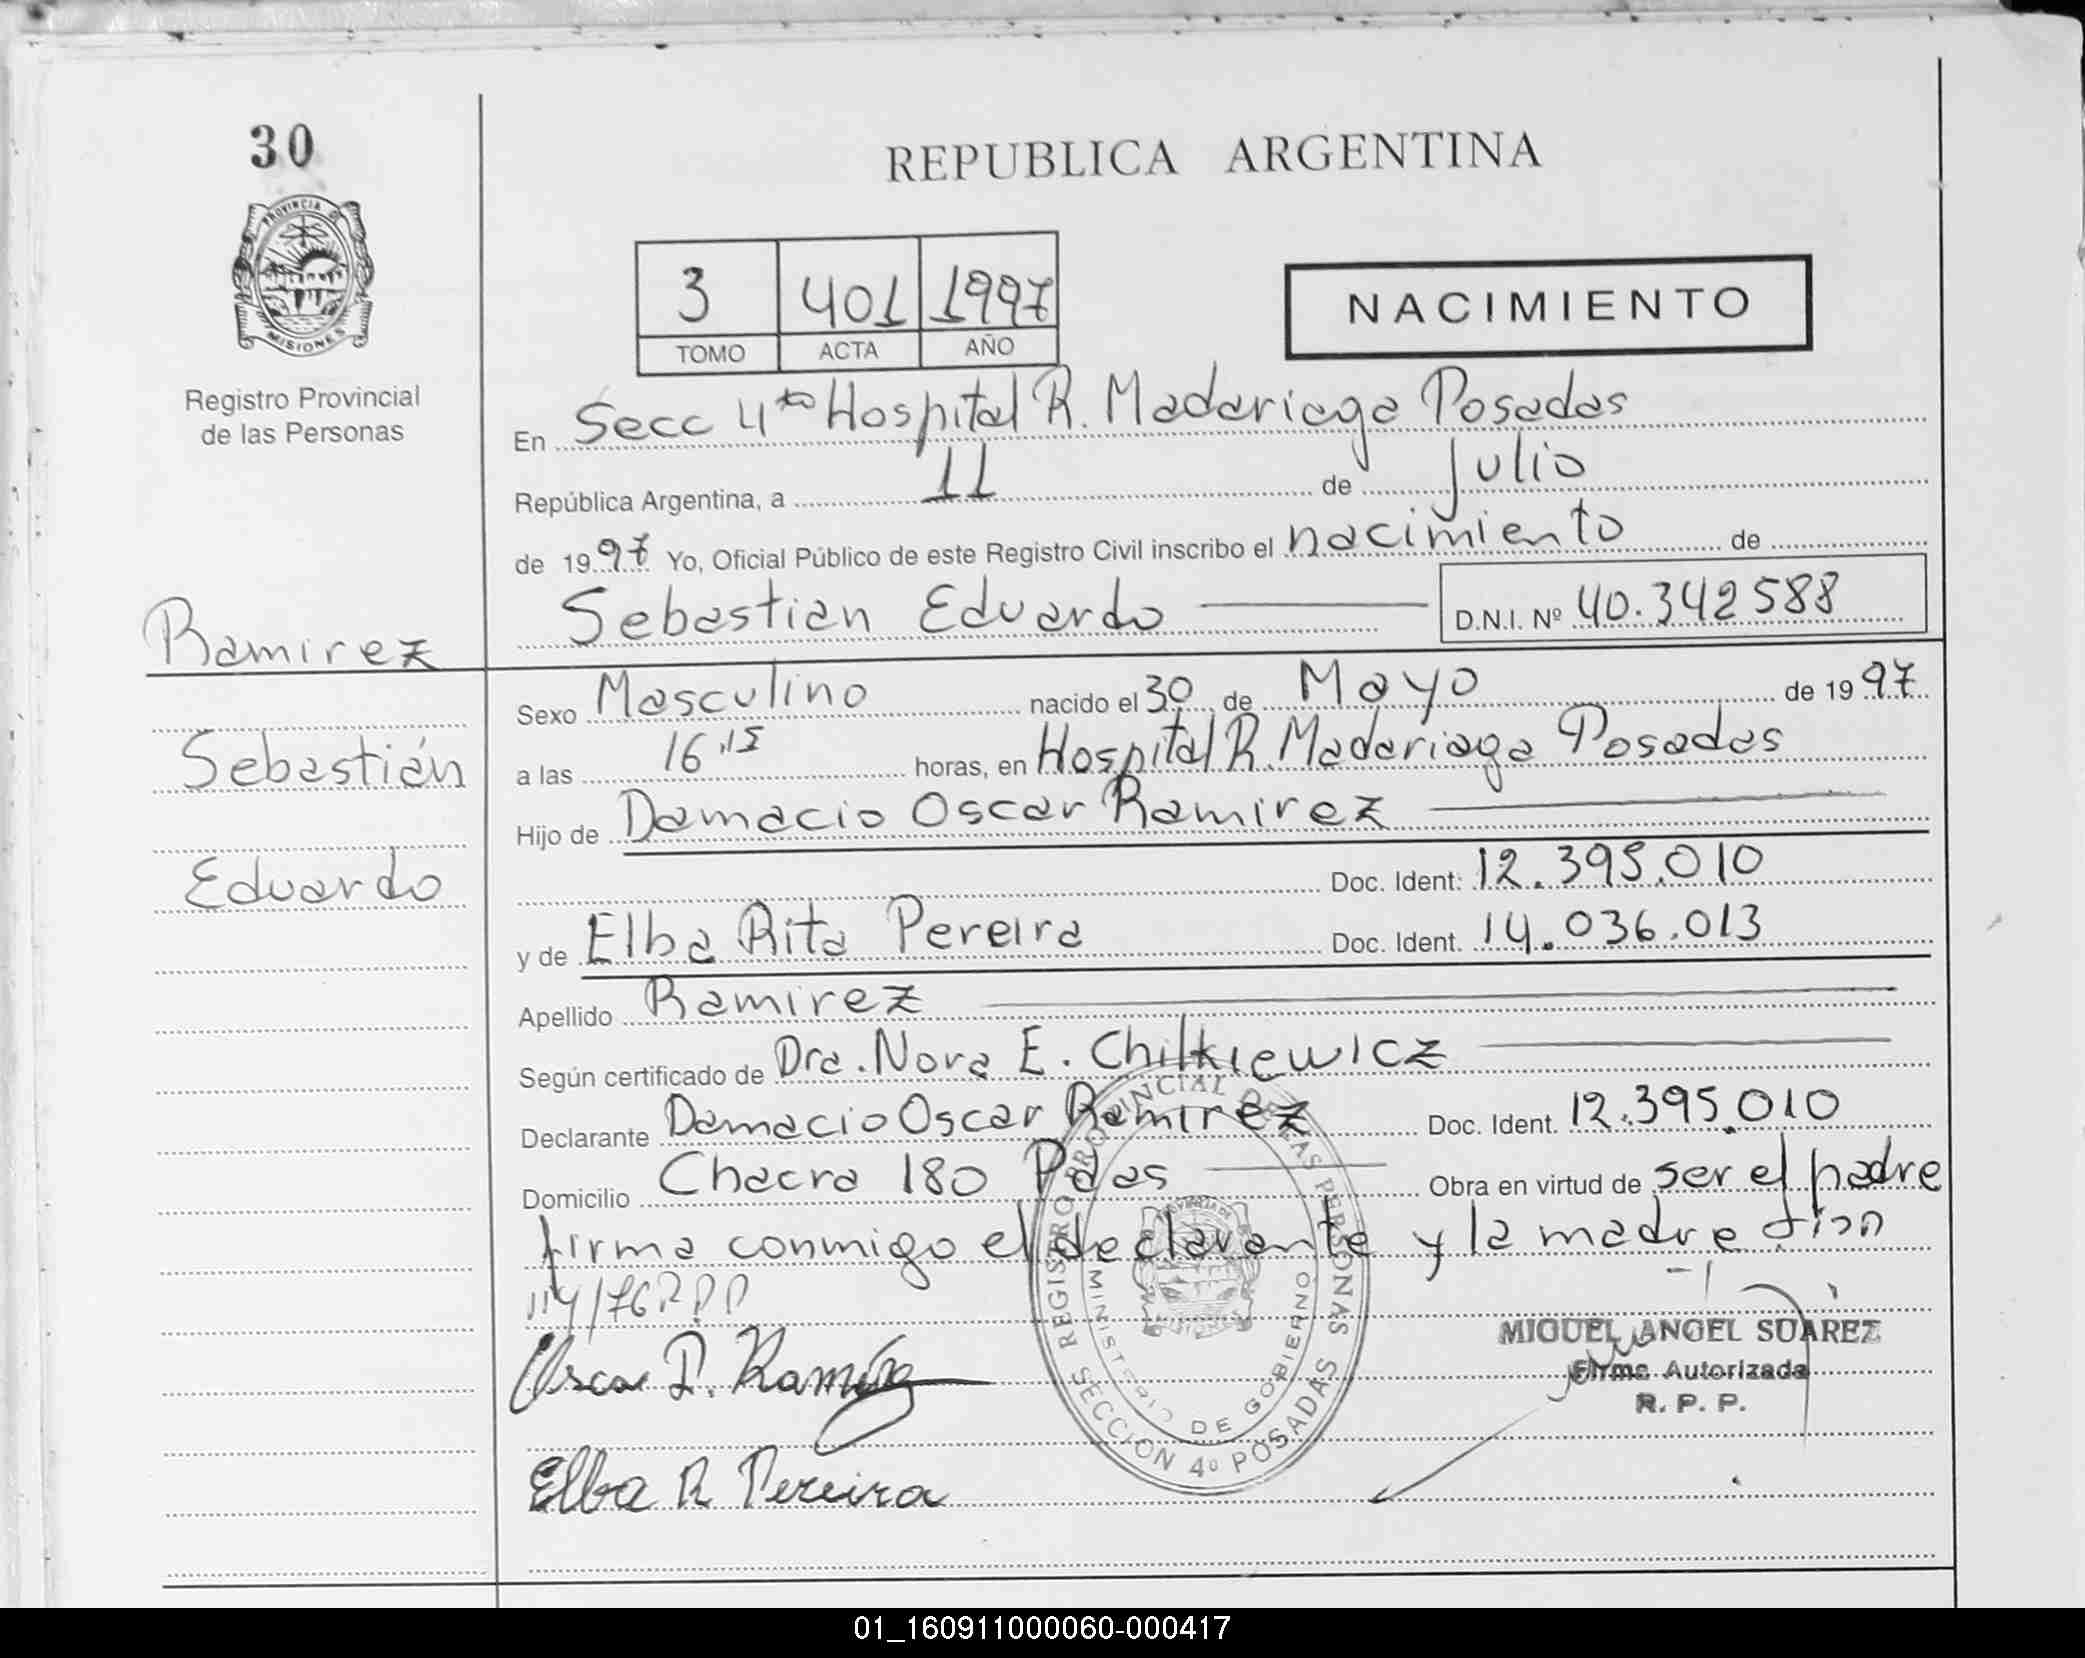 30
REPUBLICA ARGENTINA
PROVINCIA DE
MISIONES
3 401 1997
TOMO ACTA AÑO
NACIMIENTO
Registro Provincial
de las Personas
En Secc 4ta Hospital R. Madariaga Posadas
República Argentina, a 11 de Julio
de 1997 Yo, Oficial Público de este Registro Civil inscribo el nacimiento de
Sebastian Eduardo D.N.I. Nº 40.342588
Ramirez
Sebastián
Eduardo
Sexo Masculino nacido el 30 de Mayo de 1997
a las 16,15 horas, en Hospital R. Madariaga Posadas
Hijo de Damacio Oscar Ramirez
Doc. Ident: 12.395.010
y de Elba Rita Pereira Doc. Ident. 14.036.013
Apellido Ramirez
Según certificado de Dra. Nora E. Chilkiewicz
Declarante Damacio Oscar Ramirez Doc. Ident. 12.395.010
Domicilio Chacra 180 Pdas Obra en virtud de ser el padre
firma conmigo el declarante y la madre
Oscar D. Ramírez
Elba R Pereira
REGISTRO PROVINCIAL DE LAS PERSONAS
MINISTERIO DE GOBIERNO
SECCION 4º POSADAS
MIGUEL ANGEL SUAREZ
Firma Autorizada
R. P. P.
01_160911000060-000417